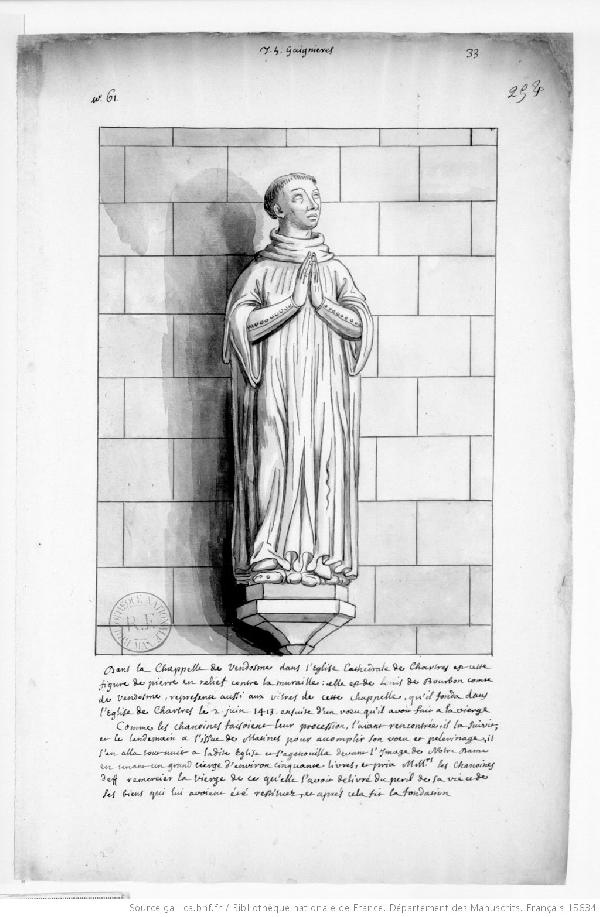 J. h. Gaignieres
33
n.º 61.
254
BIBLIOTHEQUE NATIONALE
R.F.
MAN
Dans la Chappelle de Vendosme dans l'Eglise Cathedrale de Chartres est cette
figure de pierre en relief contre la muraille, elle est de Louis de Bourbon comte
de Vendosme, represente aussi aux vitres de cette chappelle, qu'il fonda dans
l'Eglise de Chartres le 2 juin 1413. ensuite d'un voeu qu'il avoit fait a la vierge
Comme les chanoines faisoient leur procession, l'aiant rencontrée, il la suivit,
et le lendemain a l'issue de Matines pour acomplir son voeu et pelerinage, il
s'en alla tout nuit a ladite Eglise et s'agenouilla devant l'Image de Notre Dame
en tenant un grand cierge d'environ cinquante livres, et pria M.rs les Chanoines
remercier la Vierge de ce qu'elle l'avoit delivré du peril de sa vie et de
ses biens qui lui avoient été restituez, et aprés cela fit la fondation
Source gallica.bnf.fr / Bibliothèque nationale de France. Département des Manuscrits. Français 15634